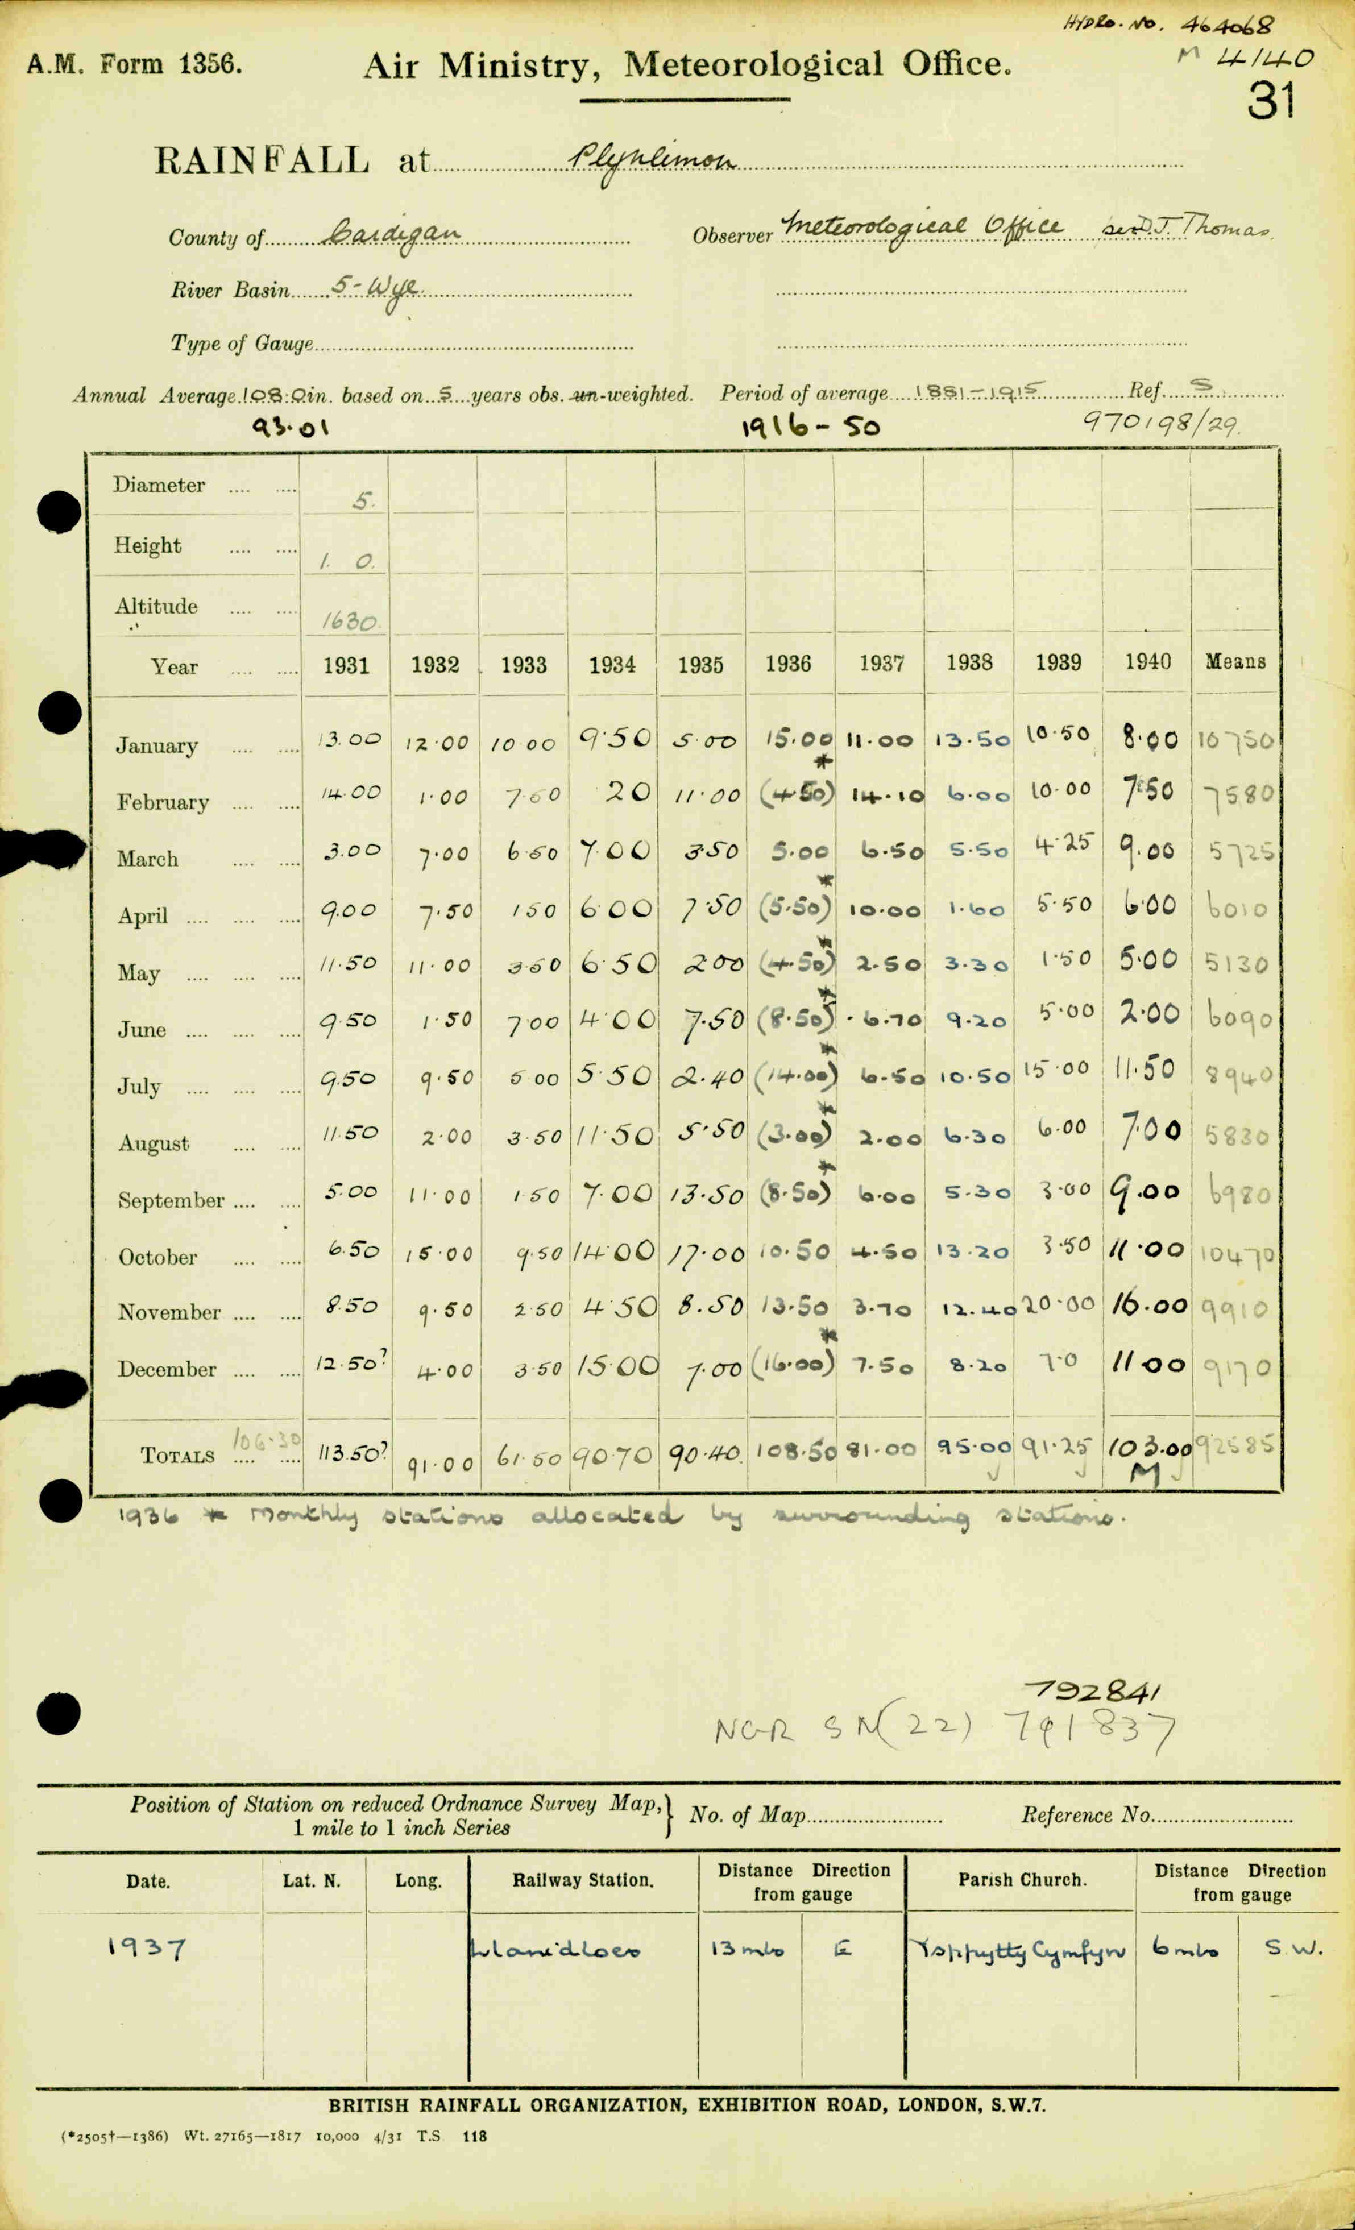 HYDRO. NO. 464068
A.M. Form 1356. Air Ministry, Meteorological Office. M 4140
31
RAINFALL at Plynlimon
County of Cardigan Observer Meteorological Office per D.J. Thomas
River Basin 5 - Wye
Type of Gauge
Annual Average 108.0 in. based on 5 years obs. un-weighted. Period of average 1881-1915 Ref. S.
93.01 1916-50 970198/29.
Diameter 5.
Height 1. 0.
Altitude 1630
Year 1931 1932 1933 1934 1935 1936 1937 1938 1939 1940 Means
January 13.00 12.00 10 00 9.50 5.00 15.00 11.00 13.50 10.50 8.00 10750
February 14.00 1.00 7.50 20 11.00 (4.50)* 14.10 6.00 10.00 7.50 7580
March 3.00 7.00 6.50 7.00 3.50 5.00 6.50 5.50 4.25 9.00 5725
April 9.00 7.50 1.50 6.00 7.50 (5.50)* 10.00 1.60 5.50 6.00 6010
May 11.50 11.00 3.50 6.50 2.00 (4.50)* 2.50 3.30 1.50 5.00 5130
June 9.50 1.50 7.00 4.00 7.50 (8.50)* 6.70 9.20 5.00 2.00 6090
July 9.50 9.50 5 00 5.50 2.40 (14.00)* 6.50 10.50 15.00 11.50 8940
August 11.50 2.00 3.50 11.50 5.50 (3.00)* 2.00 6.30 6.00 7.00 5830
September 5.00 11.00 1.50 7.00 13.50 (8.50)* 6.00 5.30 3.00 9.00 6980
October 6.50 15.00 9.50 14.00 17.00 10.50 4.50 13.20 3.50 11.00 10470
November 8.50 9.50 2.50 4.50 8.50 13.50 3.70 12.40 20.00 16.00 9910
December 12.50? 4.00 3.50 15.00 7.00 (16.00)* 7.50 8.20 7.0 11.00 9170
TOTALS 106.30 113.50? 91.00 61.50 90.70 90.40. 108.50 81.00 95.00 91.25 103.00 92585
M
1936 * Monthly stations allocated by surrounding stations.
792841
NGR SN(22) 791837
Position of Station on reduced Ordnance Survey Map, } No. of Map Reference No.
1 mile to 1 inch Series
Date. Lat. N. Long. Railway Station. Distance from gauge Direction Parish Church. Distance from gauge Direction
1937 Llanidloes 13 mls E Ysppytty Cymfyn 6 mls S.W.
BRITISH RAINFALL ORGANIZATION, EXHIBITION ROAD, LONDON, S.W.7.
(*2505†—1386) Wt. 27165—1817 10,000 4/31 T.S. 118